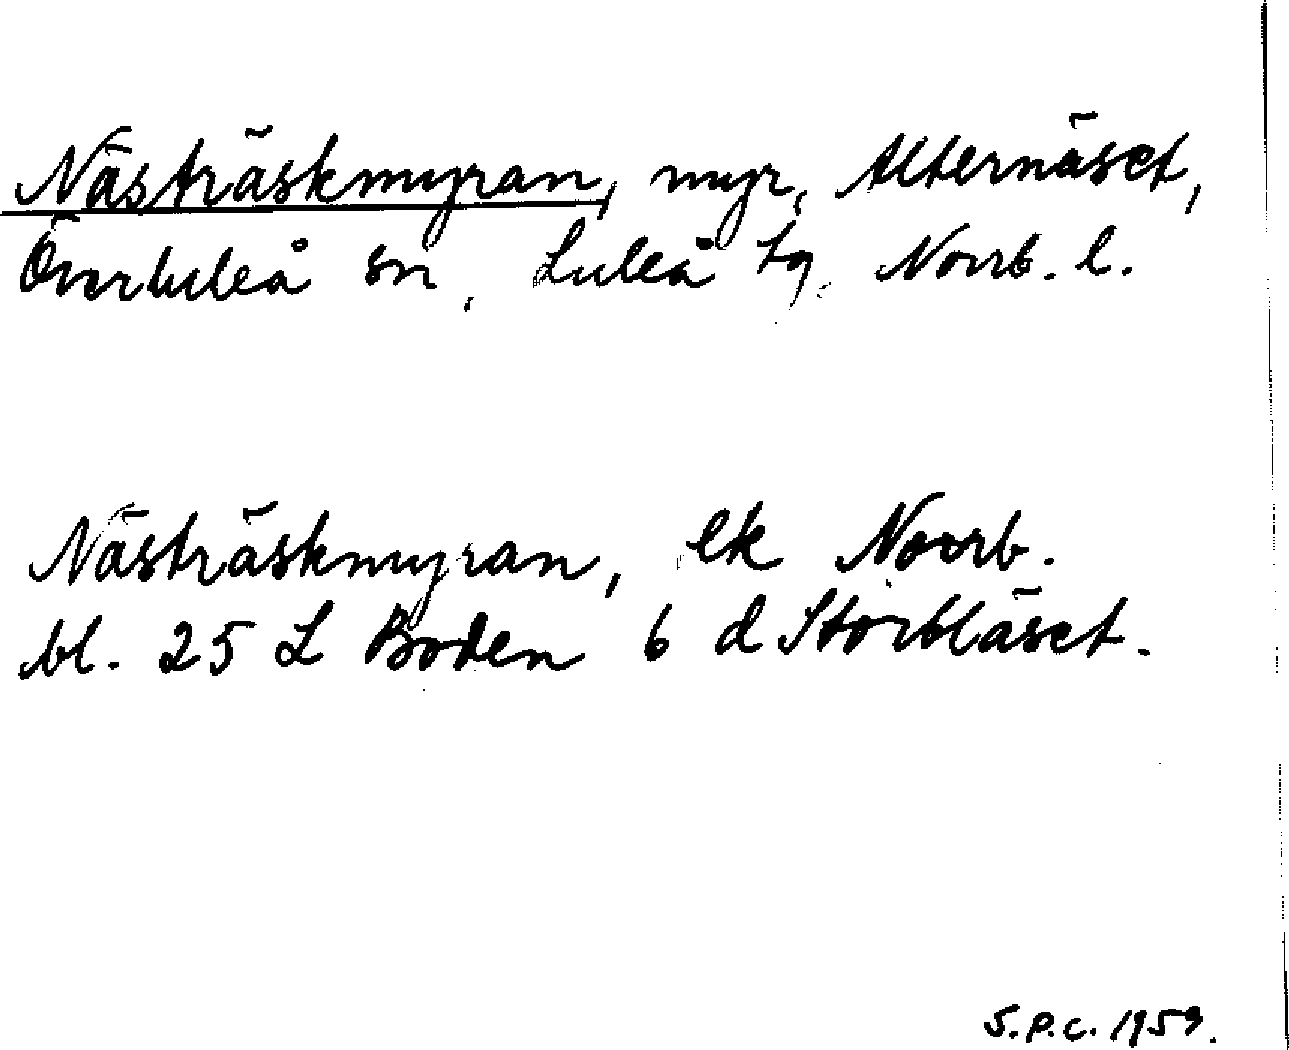 Nästräskmyran, myr, Alternäset,
Överluleå sn, Luleå tg, Norrb. l.
Nästräskmyran, ek Norrb.
bl. 25 L Boden 6 d Storbläset.
S.P.C. 1959.